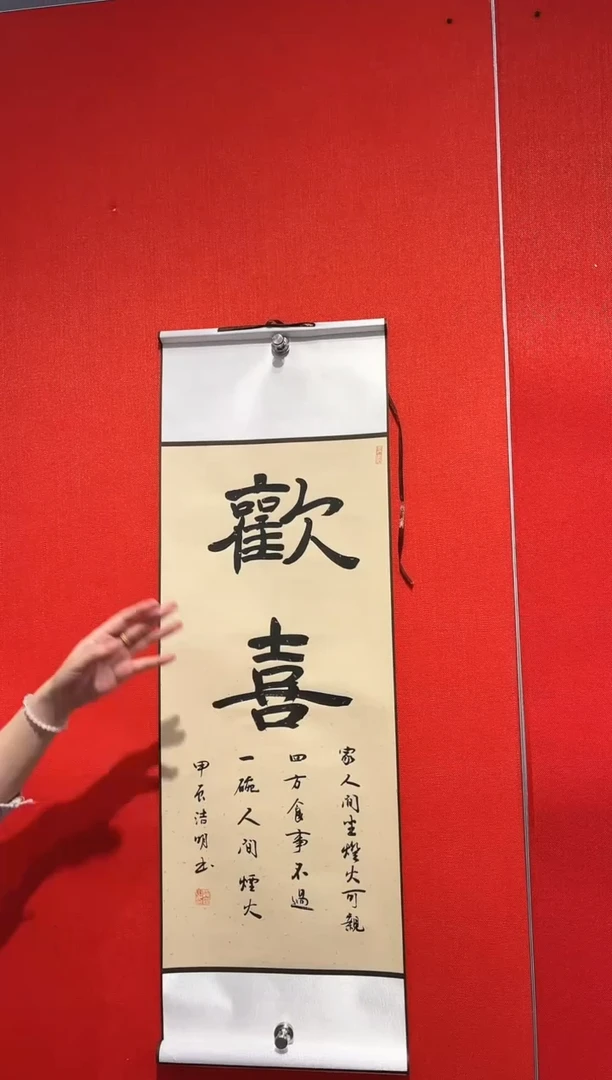 歡喜
家人閒坐燈火可親
四方食事不過
一碗人间煙火
甲辰浩明书